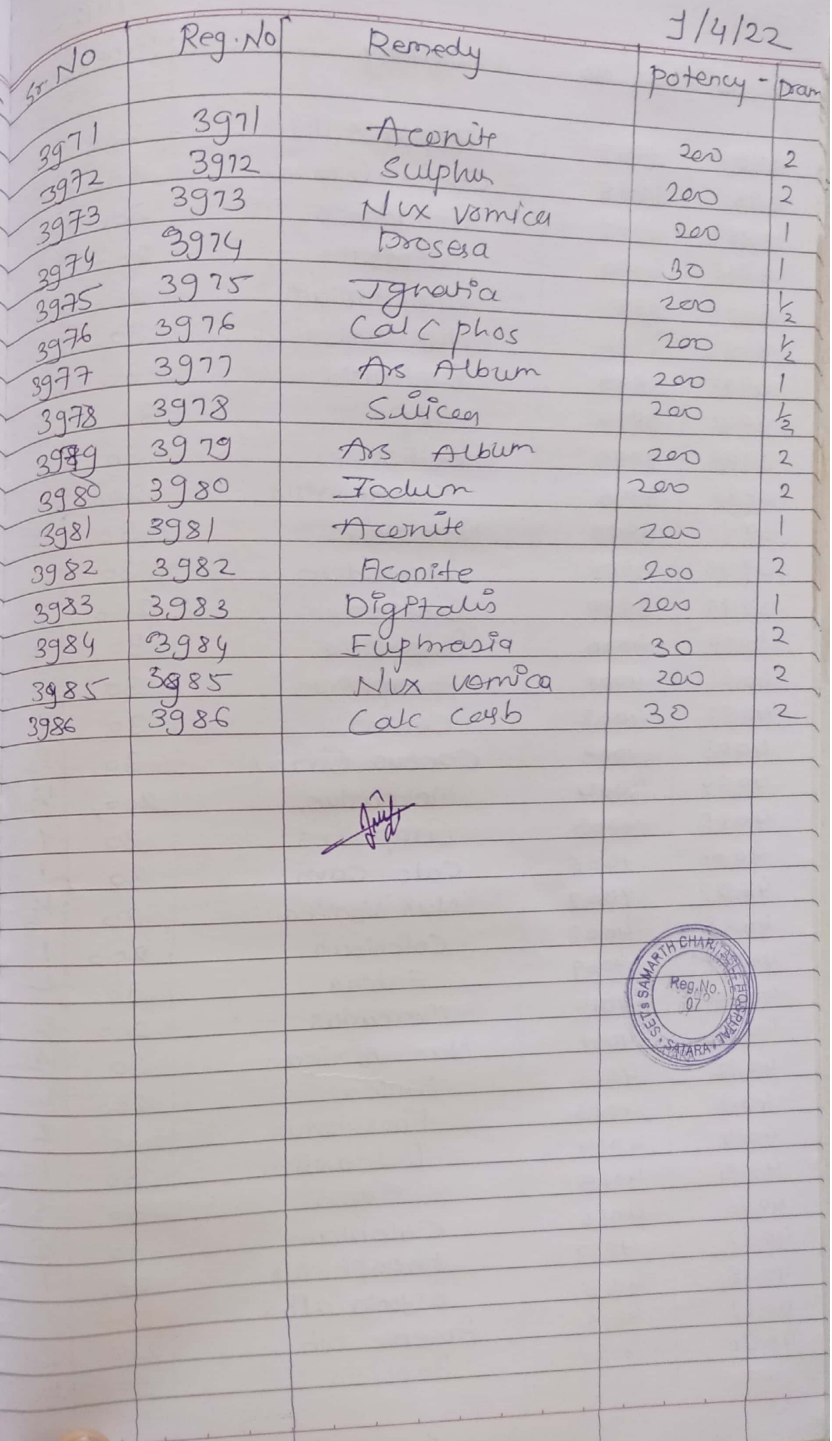 1/4/22
Sr. No Reg. No Remedy Potency - Dram
3971 3971 Aconite 200 2
3972 3972 Sulphur 200 2
3973 3973 Nux vomica 200 1
3974 3974 Drosera 30 1
3975 3975 Ignatia 200 1/2
3976 3976 Calc phos 200 1/2
3977 3977 Ars Album 200 1
3978 3978 Silicea 200 1/2
3979 3979 Ars Album 200 2
3980 3980 Iodum 200 2
3981 3981 Aconite 200 1
3982 3982 Aconite 200 2
3983 3983 Digitalis 200 1
3984 3984 Euphrasia 30 2
3985 3985 Nux vomica 200 2
3986 3986 Calc Carb 30 2
SET's SAMARTH CHARITABLE HOSPITAL
Reg.No.
07
SATARA